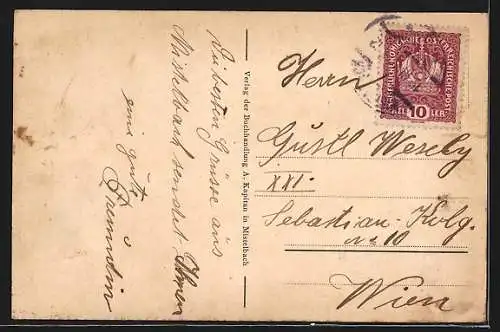 Die besten Grüsse aus
Mistelbach sendet Ihnen
eine gute
Freundin
Verlag der Buchhandlung A. Kapitan in Mistelbach
Herrn
Gustl Wesely
XXI.
Sebastian-Kolg.
No 10
Wien
KAISERLICHE KÖNIGLICHE ÖSTERREICHISCHE POST
HELLER 10